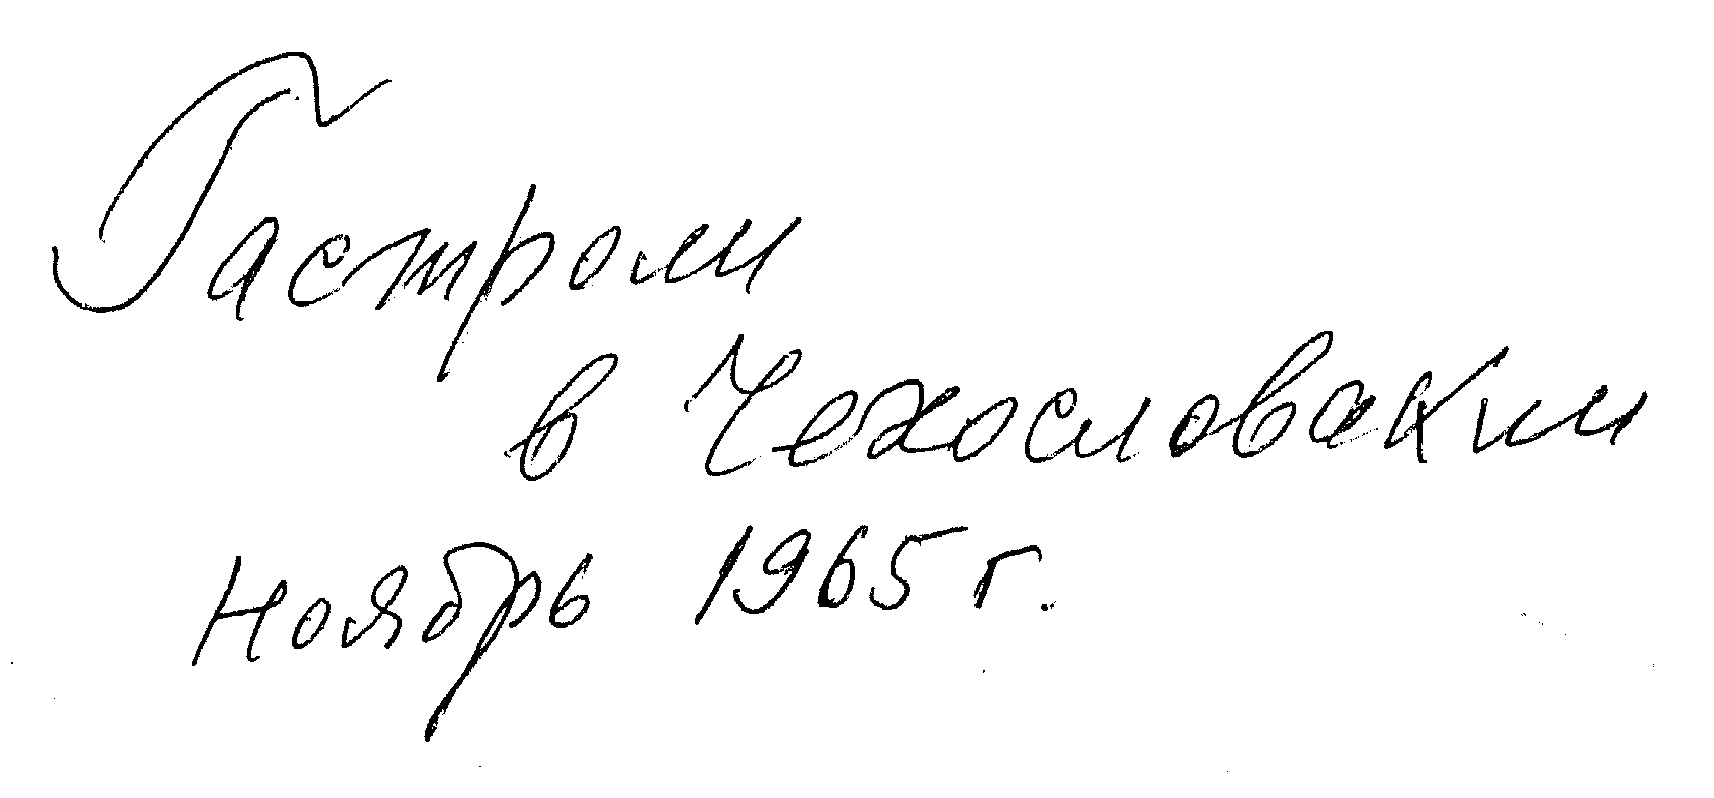 Гастроли
в Чехословакии
ноябрь 1965 г.